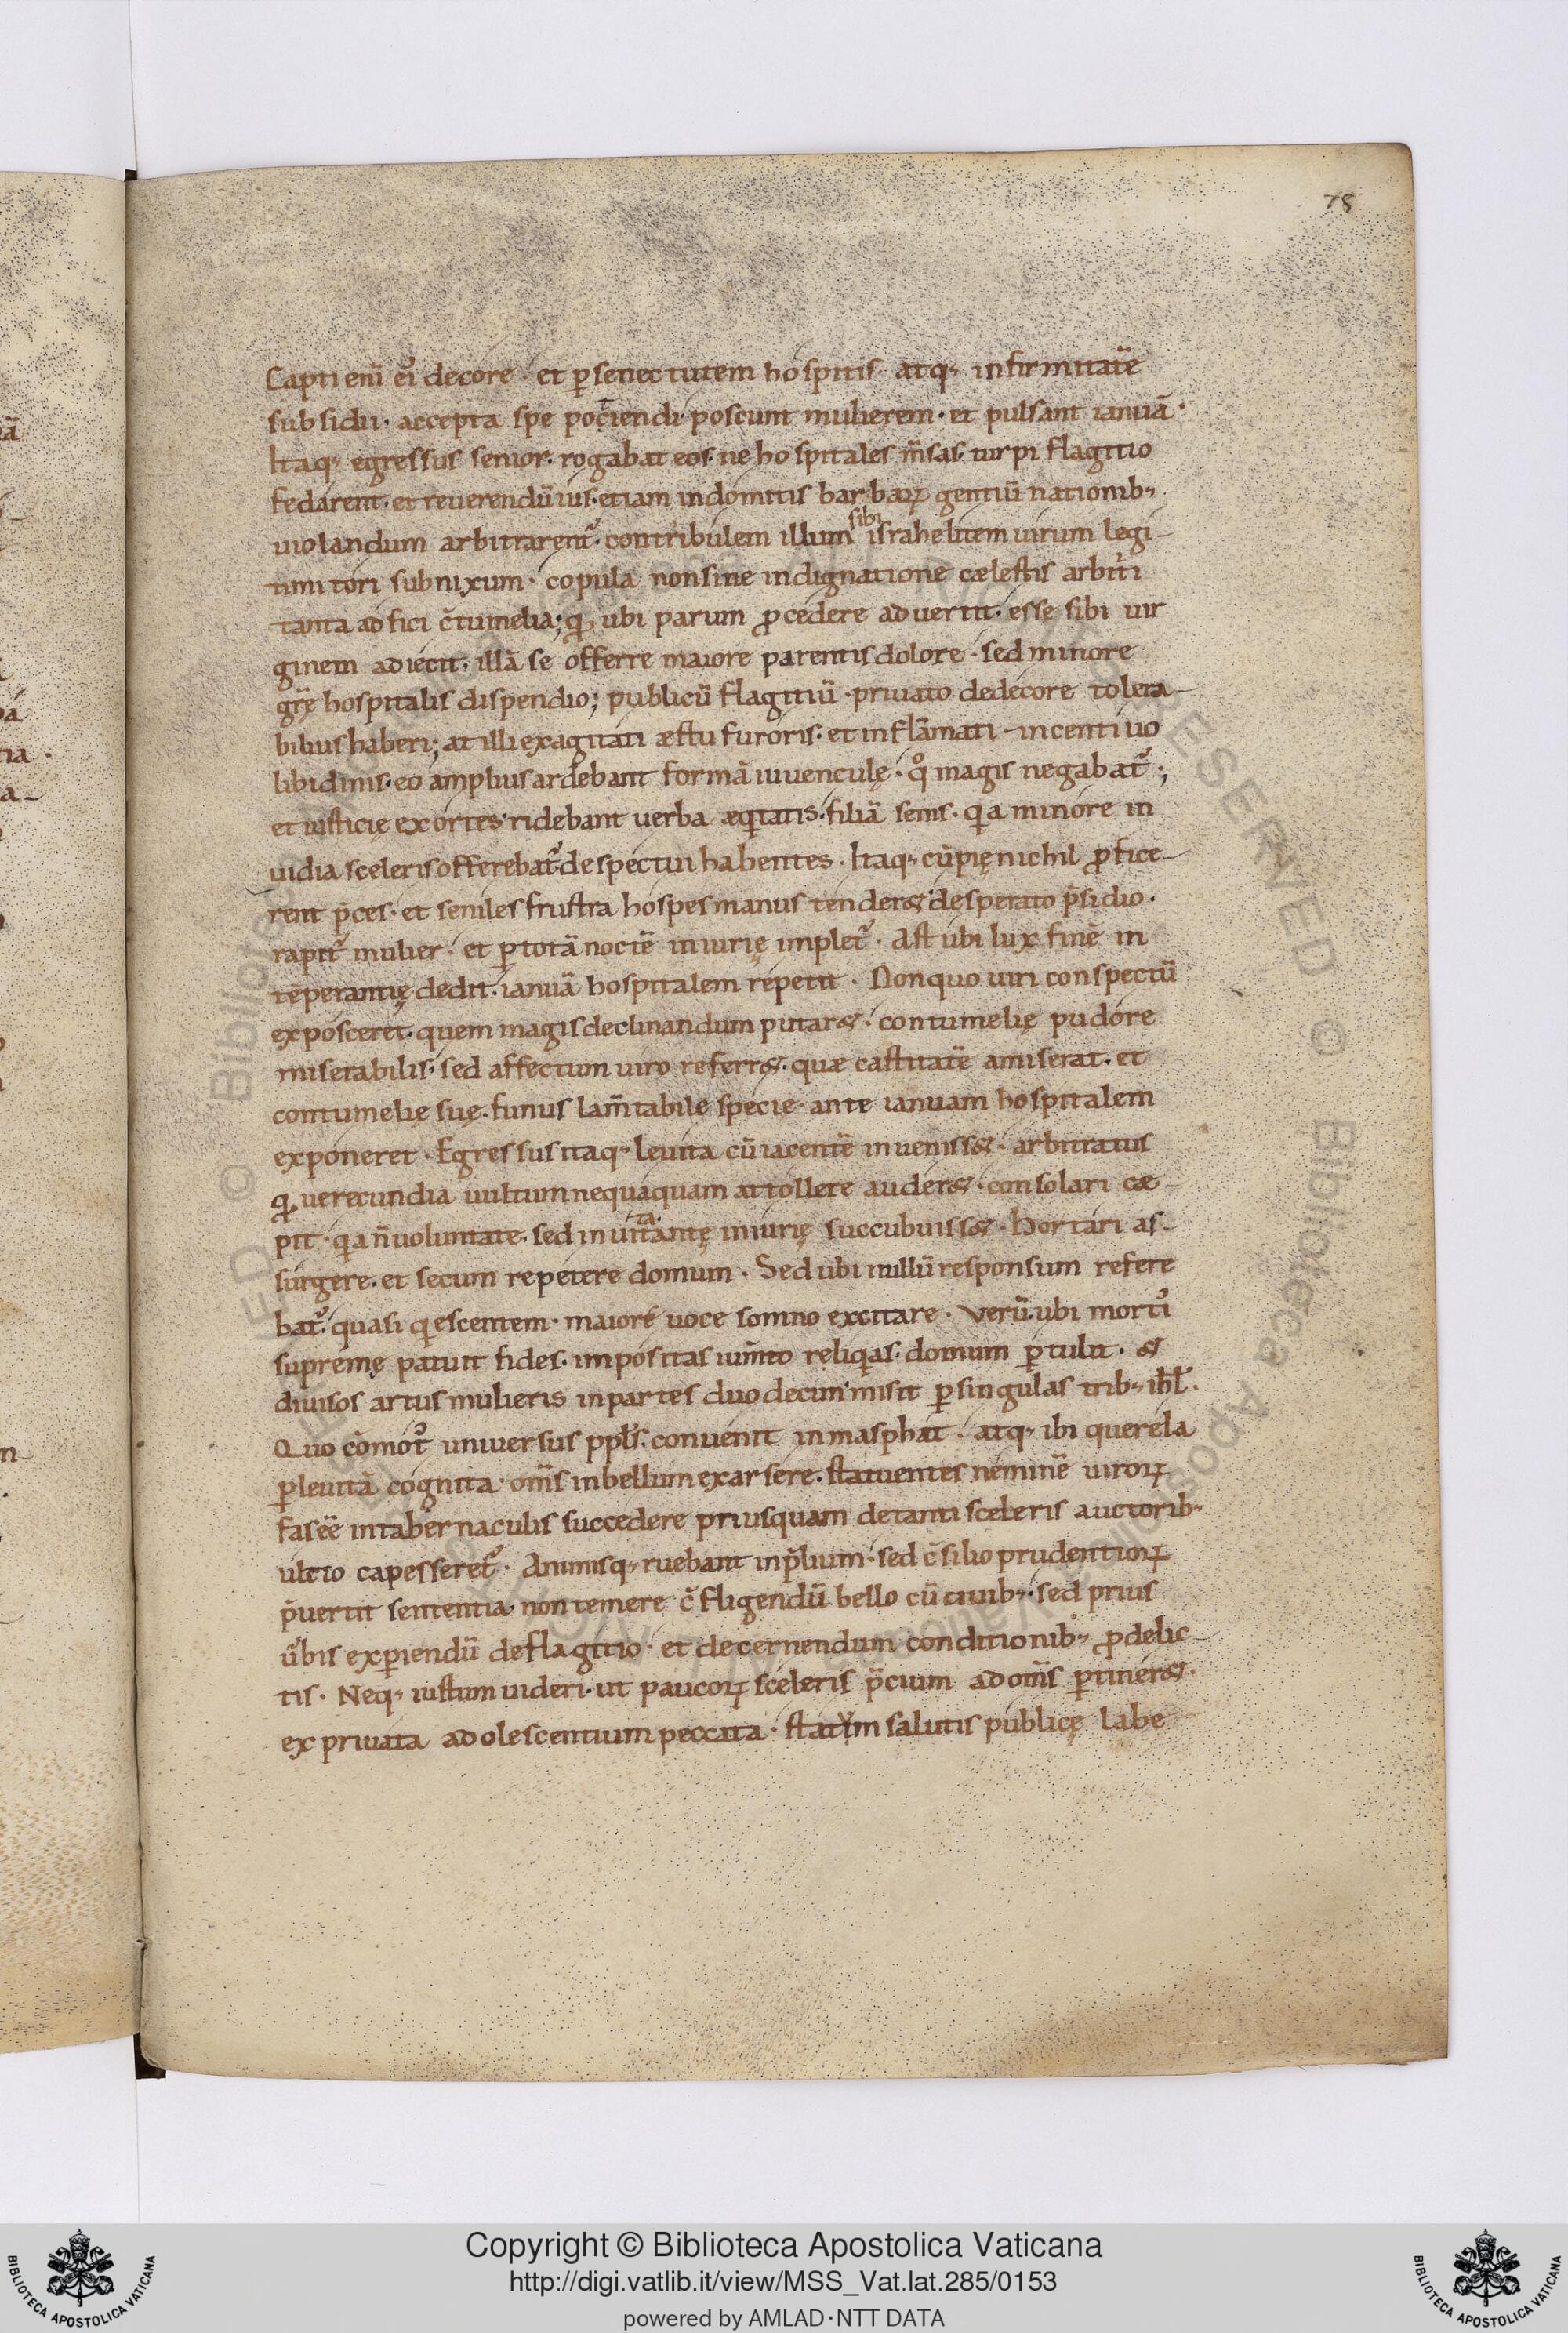 75
Capti eni᷒ ei᷒ decore · et ꝑ senectutem hospitis · atq; infirmitatē
subsidii · accepta spe pociendi · poscunt mulierem · et pulsant ianuā ·
Itaq; egressus senior · rogabat eos · ne hospitales m̄sas · turpi flagitio
fedarent · et reuerendū ius · etiam indomitis barbaꝝ gentiū nationib;
uiolandum arbitrarent᷒ · contribulem illum sibi israhelitem uirum legi-
timi tori subnixum · copula non sine indignatione cælestis arbitri
tanta adfici c̄tumelia; qđ ubi parum ꝓcedere aduertit · esse sibi uir
ginem adiecit · illā se offerre maiore parentis dolore · sed minore
gr̄ę hospitalis dispendio; publicū flagitiū · priuato dedecore tolera-
bilius haberi; at illi exagitati æstu furoris · et inflāmati · incentiuo
libidinis · eo amplius ardebant formā iuuenculę · qo magis negabat᷒ ·;
et iusticię exortes · ridebant uerba æqitatis · filiā senis · qia minore in
uidia sceleris offerebat᷒ · despectui habentes · Itaq; cū pię nichil ꝓfice-
rent p̄ces · et seniles frustra hospes manus tender& · desperato p̄sidio ·
rapit᷒ mulier · et ꝑ totā noctē iniurię implet᷒ · Ast ubi lux finē in
tēperantię dedit · ianuā hospitalem repetit · Non quo uiri conspectū
exposceret · quem magis declinandum putar& · contumelię pudore
miserabilis · sed affectum uiro referr& · quæ castitatē amiserat · et
contumelię suę · funus lam̄tabile specie · ante ianuam hospitalem
exponeret · Egressus itaq; leuita cū iacentē inueniss& · arbitratus
qđ uerecundia uultum nequaquam attollere auder& · consolari cæ-
pit · qia n̄ uoluntate · sed inuitantę iniurię succubuiss& · Hortari as-
surgere · et secum repetere domum · Sed ubi nullū responsum refere
bat᷒ · quasi qiescentem · maiore uoce somno excitare · Verū ubi morti᷒
supremę patuit fides · impositas ium̄to reliqias · domum ꝑtulit · &
diuisos artus mulieris in partes duodecim · misit ꝑ singulas trib; isrl̄ ·
Quo cōmot᷒ uniuersus ppl̄s · conuenit in masphat · atq; ibi querela
ꝑ leuitā cognita · om̄s in bellum exarsere · statuentes neminē uiroꝝ
fas eē in tabernaculis succedere priusquam de tanti sceleris auctorib;
ultio capesseret᷒ · Animisq; ruebant in p̄lium · sed c̄silio prudentioꝝ
p̄uertit sententia · non temere c̄fligendū bello cū ciuib; · sed prius
ūbis exꝑiendū de flagitio · et decernendum conditionib; ꝓ delic-
tis · Neq; iustum uideri · ut paucoꝝ sceleris p̄cium ad om̄s ꝑtiner& ·
ex priuata adolescentium peccata · statum salutis publicę labe
Copyright © Biblioteca Apostolica Vaticana
http://digi.vatlib.it/view/MSS_Vat.lat.285/0153
powered by AMLAD·NTT DATA
BIBLIOTECA APOSTOLICA VATICANA
BIBLIOTECA APOSTOLICA VATICANA